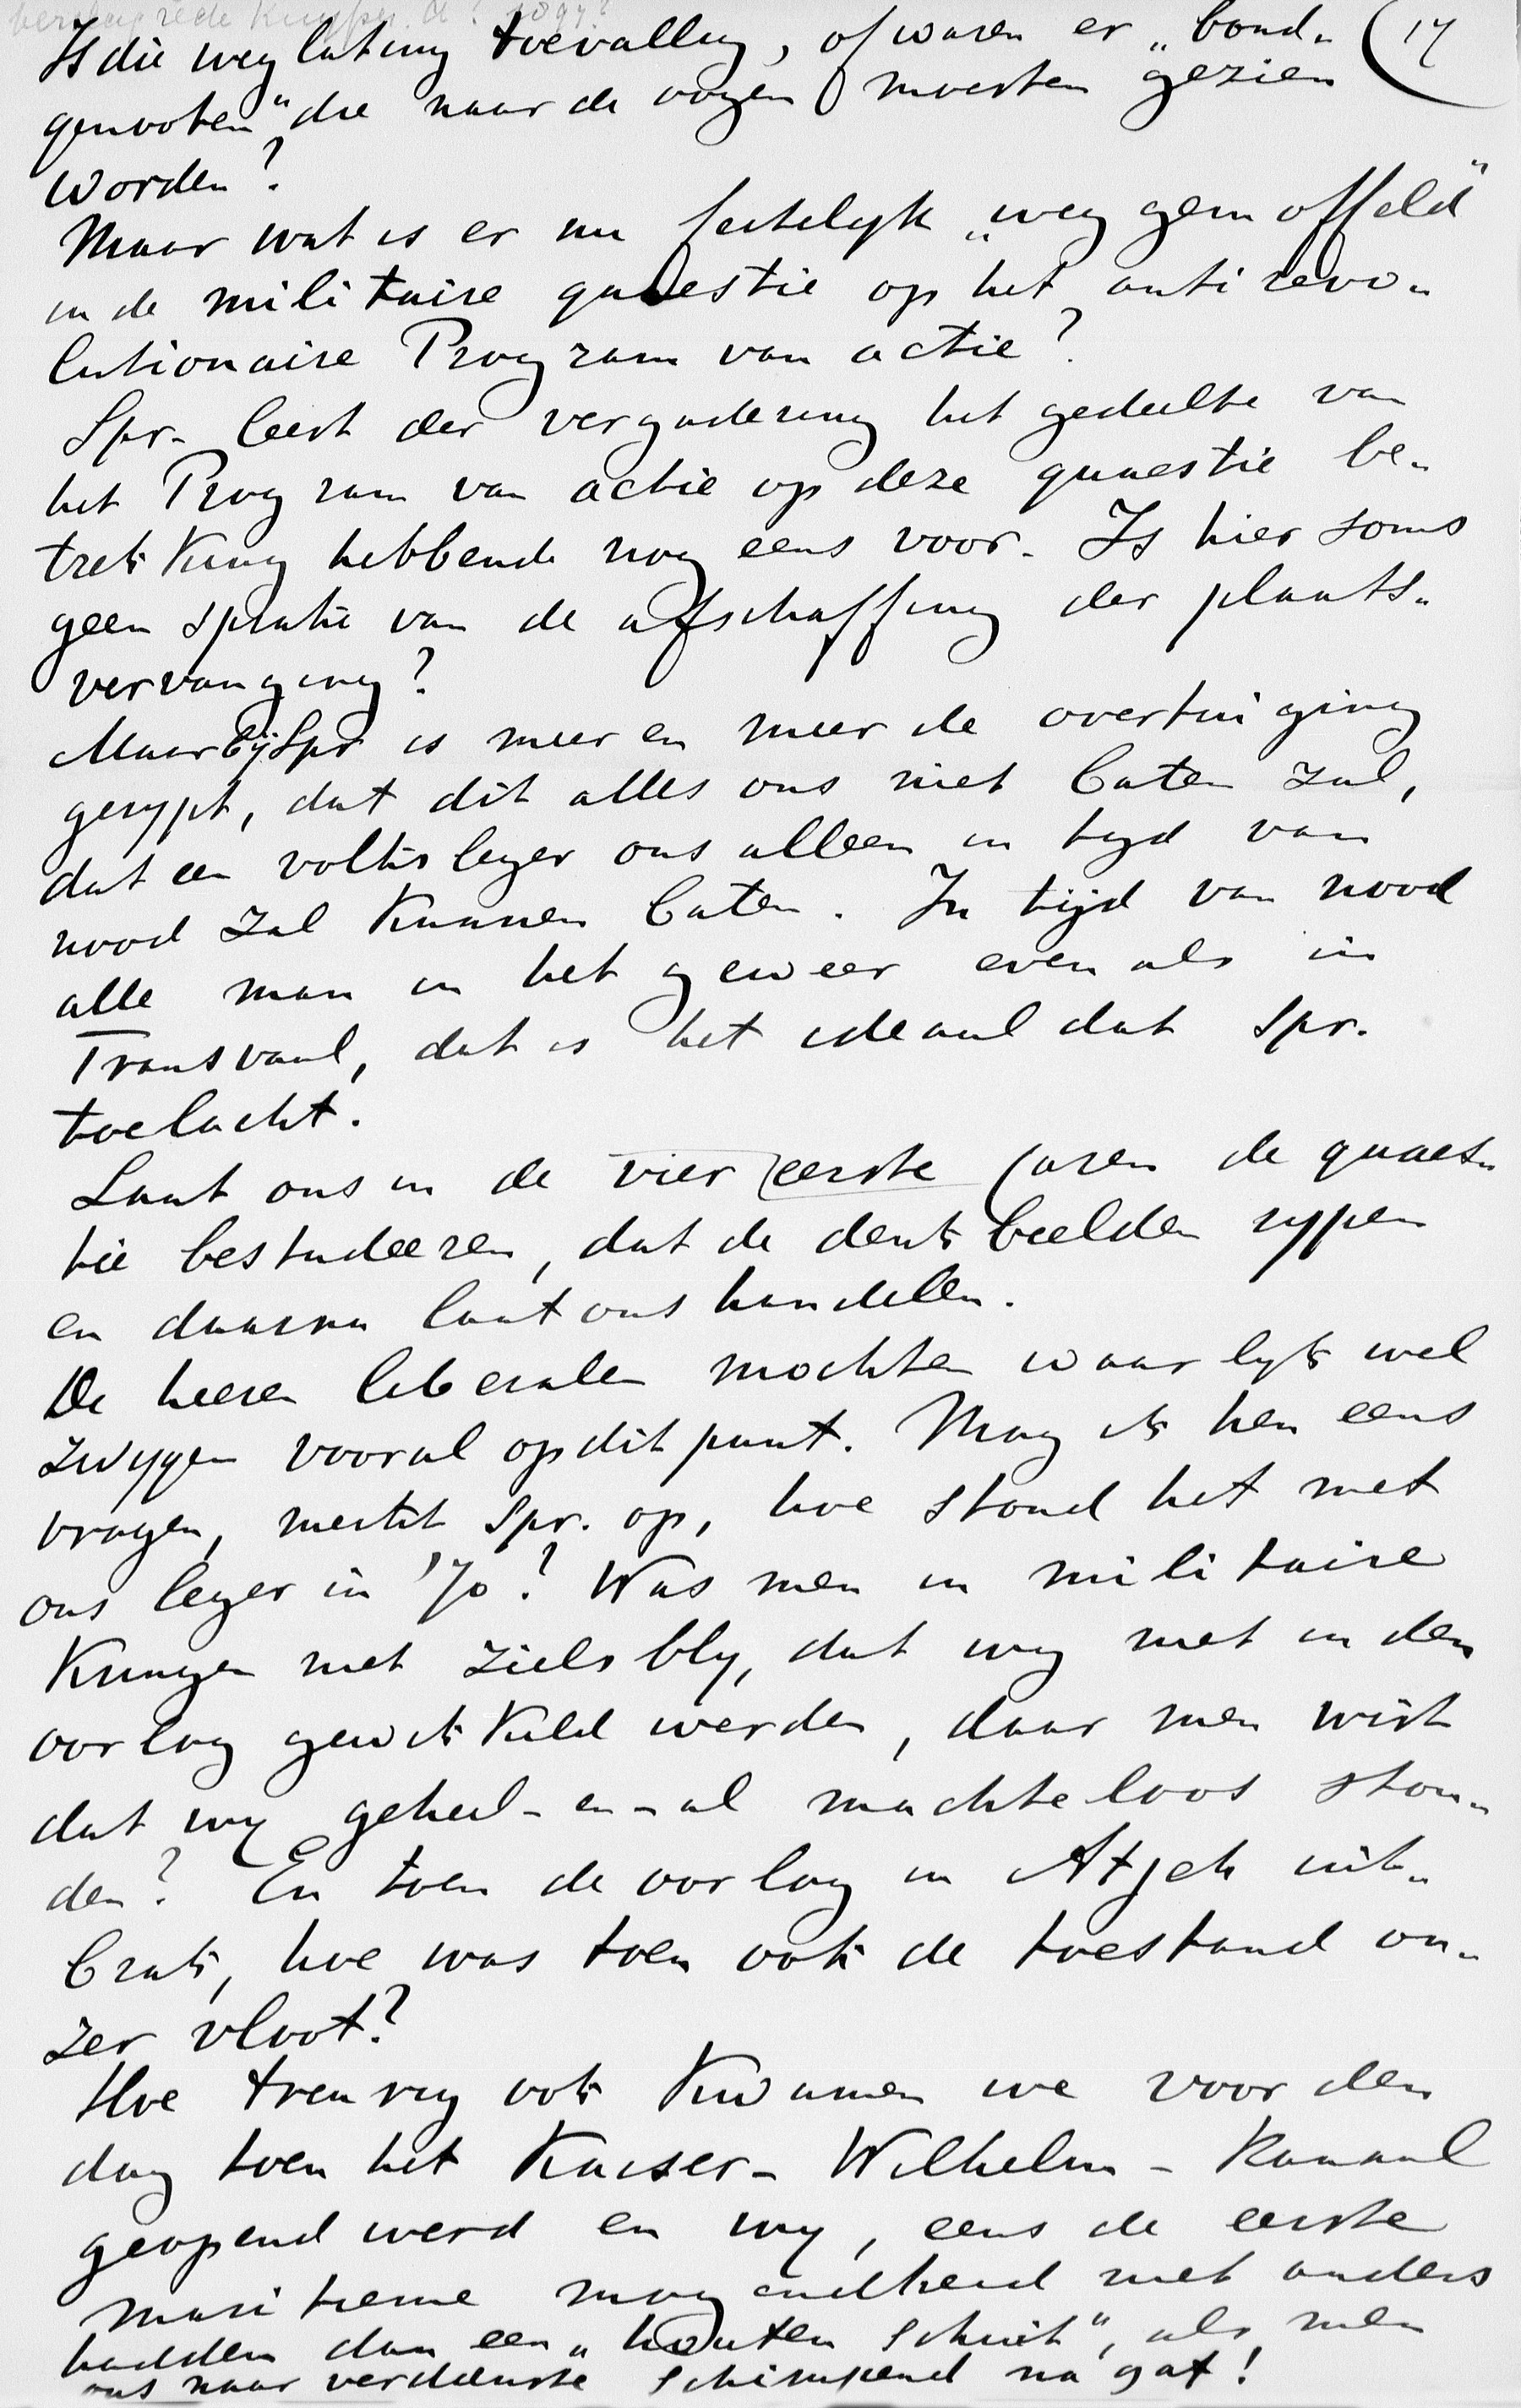 verslag rede Kuyper
17
Is die weglating toevallig, of waren er „bond„
genooten" die naar de oogen moesten gezien
worden?
Maar wat is er nu feitelyk „weggemoffeld"
in de militaire quaestie op het antirevo„
lutionaire Program van actie?
Spr. leest der vergadering het gedeelte van
het Program van actie op deze quaestie be„
trekking hebbende nog eens voor. Is hier soms
geen sprake van de afschaffing der plaats„
vervanging?
Maar bij Spr is meer en meer de overtuiging
gerypt, dat dit alles ons niet baten zal,
dat een volksleger ons alleen in tyd van
nood zal kunnen baten. In tijd van nood
alle man in het geweer evenals in
Transvaal, dat is het ideaal dat Spr.
toelacht.
Laat ons in de vier eerste jaren de quaes„
tie bestudeeren, dat de denkbeelden rypen
en daarna laat ons handelen.
De heeren liberalen mochten waarlyk wel
zwygen vooral op dit punt. Mag ik hen eens
vragen, merkt Spr. op, hoe stond het met
ons leger in '70? Was men in militaire
Kringen niet zielsbly, dat wy niet in den
oorlog gewikkeld werden, daar men wist
dat wy geheel-en-al machteloos ston„
den? En toen de oorlog in Atjeh uit„
brak, hoe was toen ook de toestand on„
zer vloot?
Hoe treurig ook kwamen we voor den
dag toen het Kaiser-Wilhelm-Kanaal
geopend werd en wy, eens de eerste
maritieme mogendheid niet anders
hadden dan een „houten schuit", als men
ons naar verdienste schimpend na gaf!